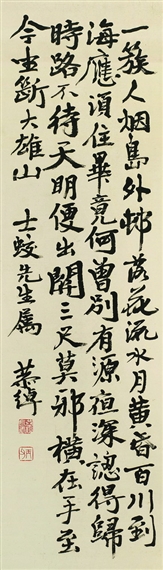 一簇人烟島外邨落花流水月黄昏百川到
海應須住畢竟何曾別有源亱深認得歸
時路不待天明便出關三尺莫邪橫在手至
今坐斷大雄山 士蛟先生属 恭綽